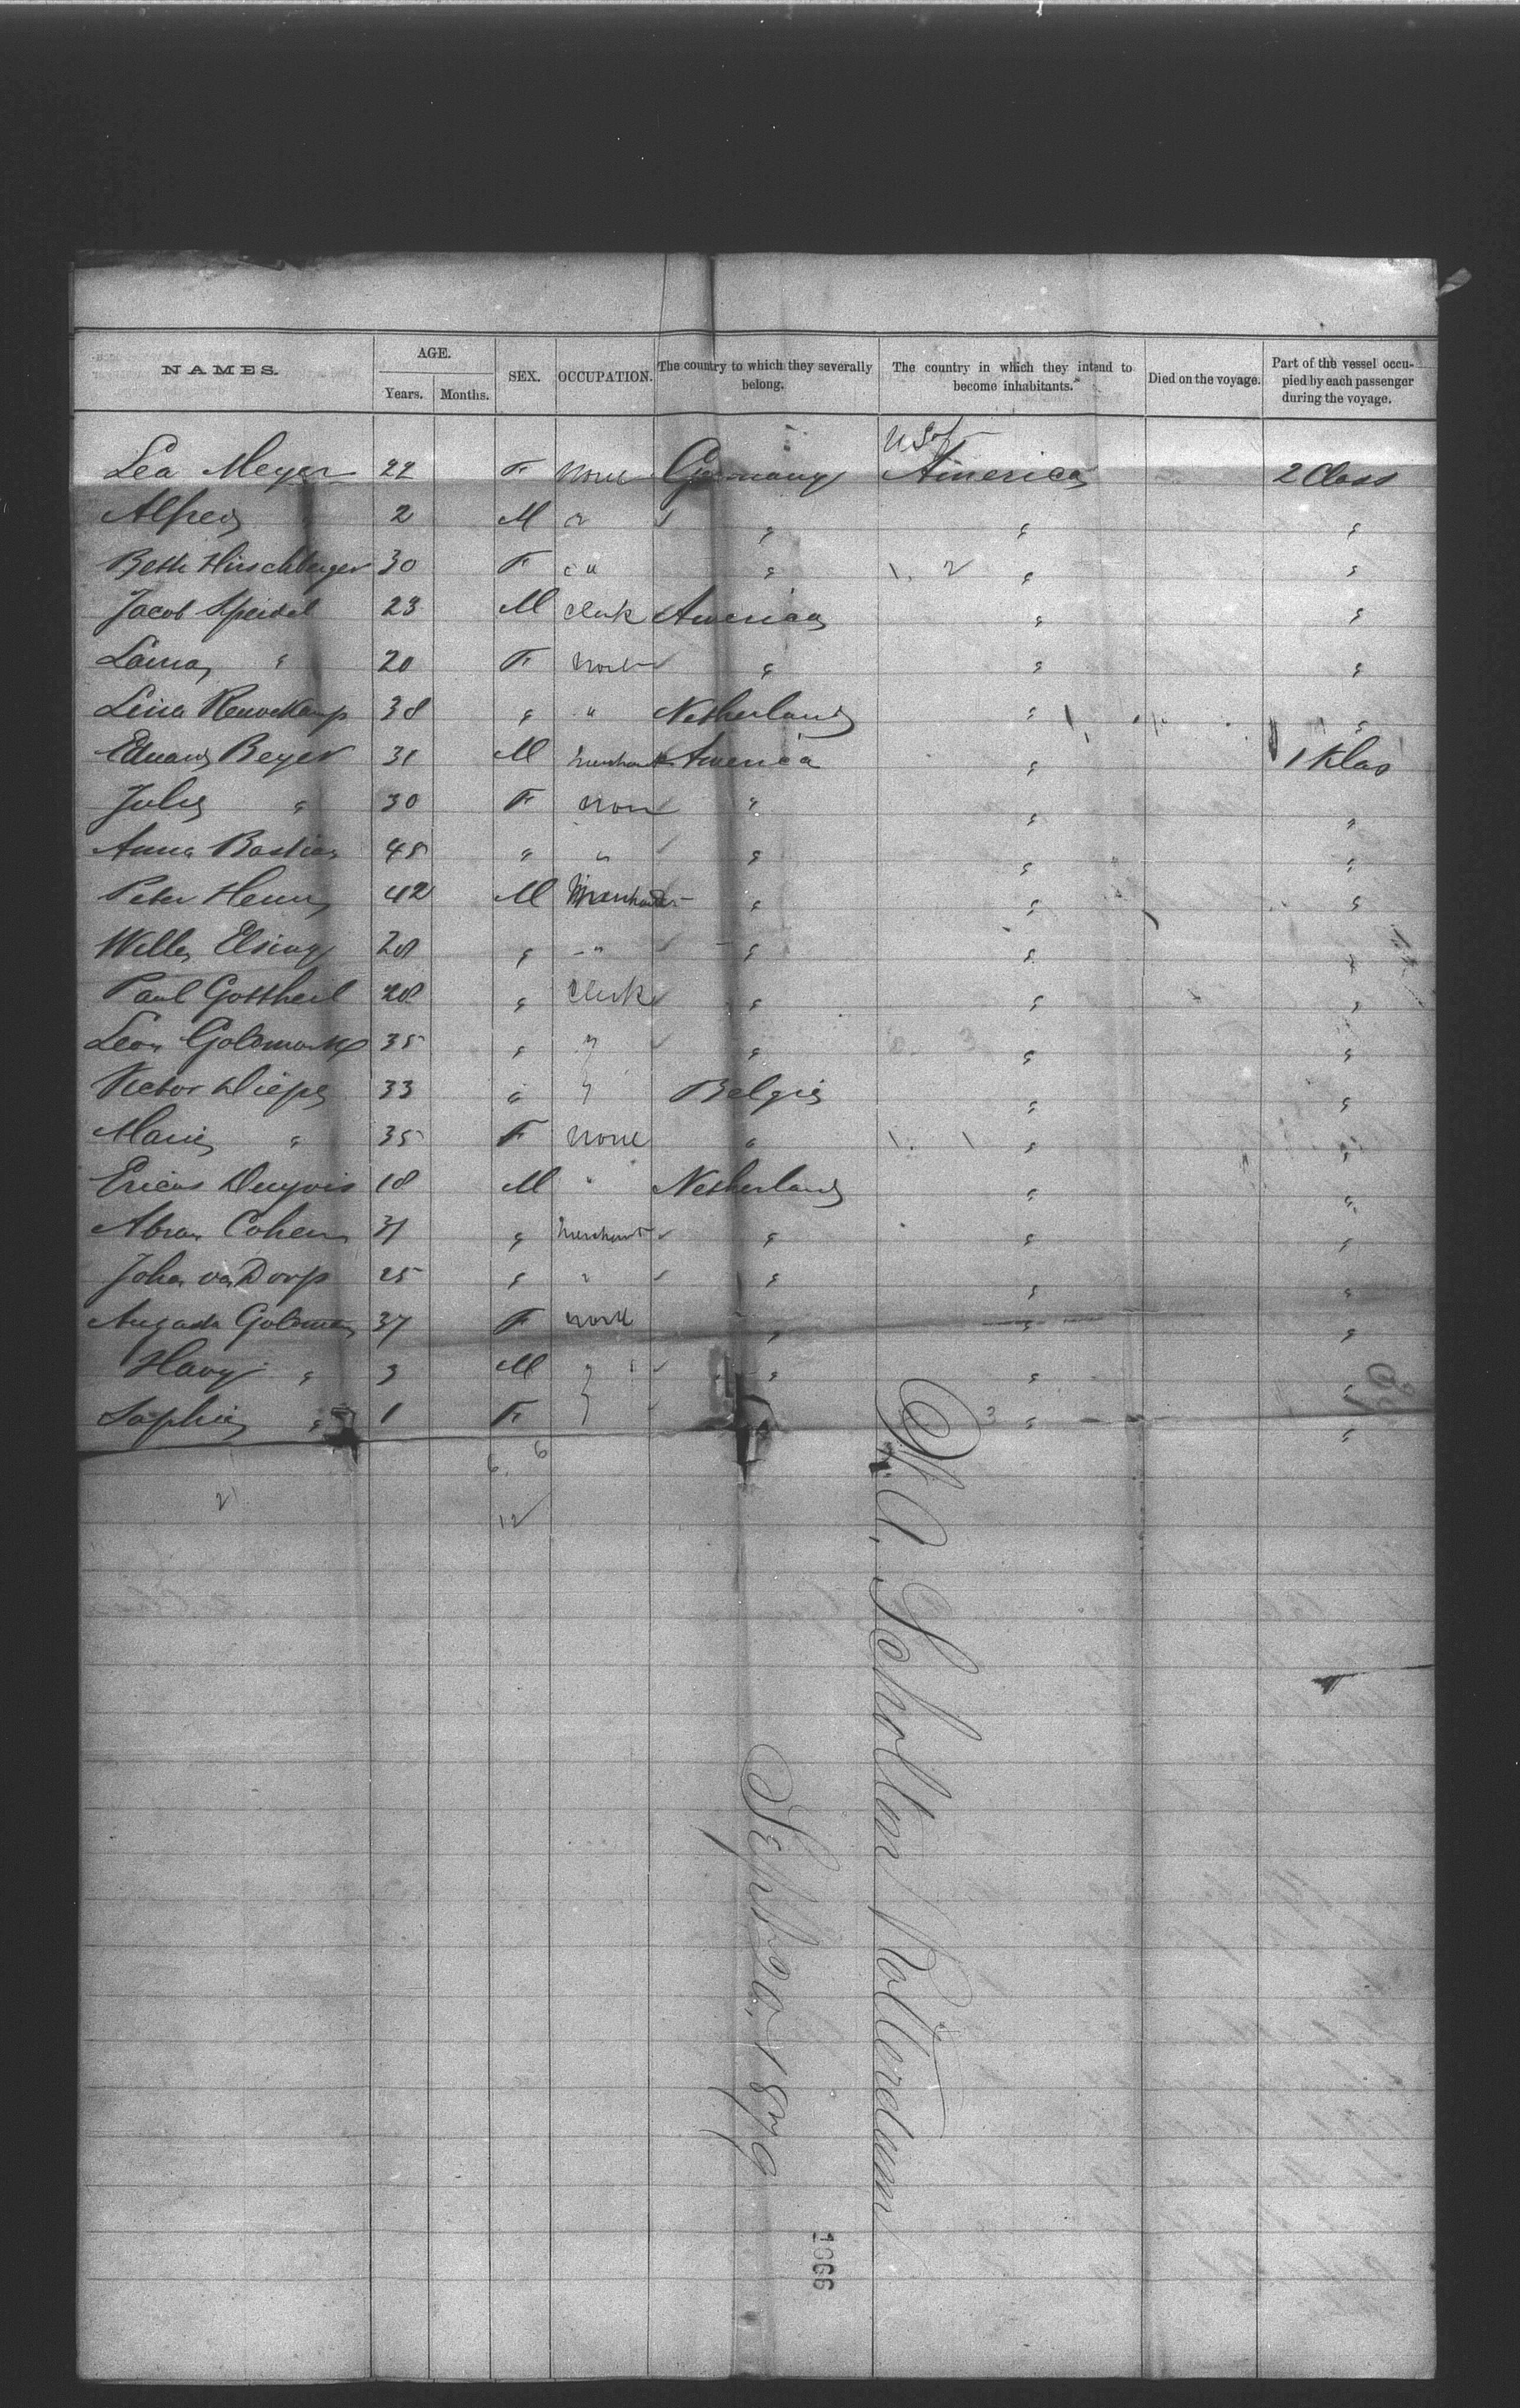 NAMES. AGE. Years. Months. SEX. OCCUPATION. The country to which they severally belong. The country in which they intend to become inhabitants. Died on the voyage. Part of the vessel occupied by each passenger during the voyage.
Lea Meyer 22 F None Germany U S of America 2 Class
Alfred " 2 M " " " "
Beth Hirschberger 30 F " " " "
Jacob Speidel 23 M Clerk America " "
" 20 F None " " "
Lina 38 " " Netherland " "
Eduard Beyer 31 M Merchant America " 1 Klas
Julie " 30 F None " " "
Anna Bastian 45 " " " " "
Peter Henry 42 M Merchant " " "
Elsing 28 " " " " "
Paul Gottheil 28 " Clerk " " "
Leon Goldmark 35 " " " " "
Victor 33 " " Belgie " "
Marie " 35 F None " " "
Duyvis 18 M " Netherland " "
Abram Cohen 31 " Merchant " " "
Johan van Dorp 25 " " " " "
Augusta Goldman 37 F None " " "
Harry " 3 M " " " "
Sophie " 1 F " " "
6 6
21
12
W. A. Scholten Rotterdam
Sept 20, 1879
1066